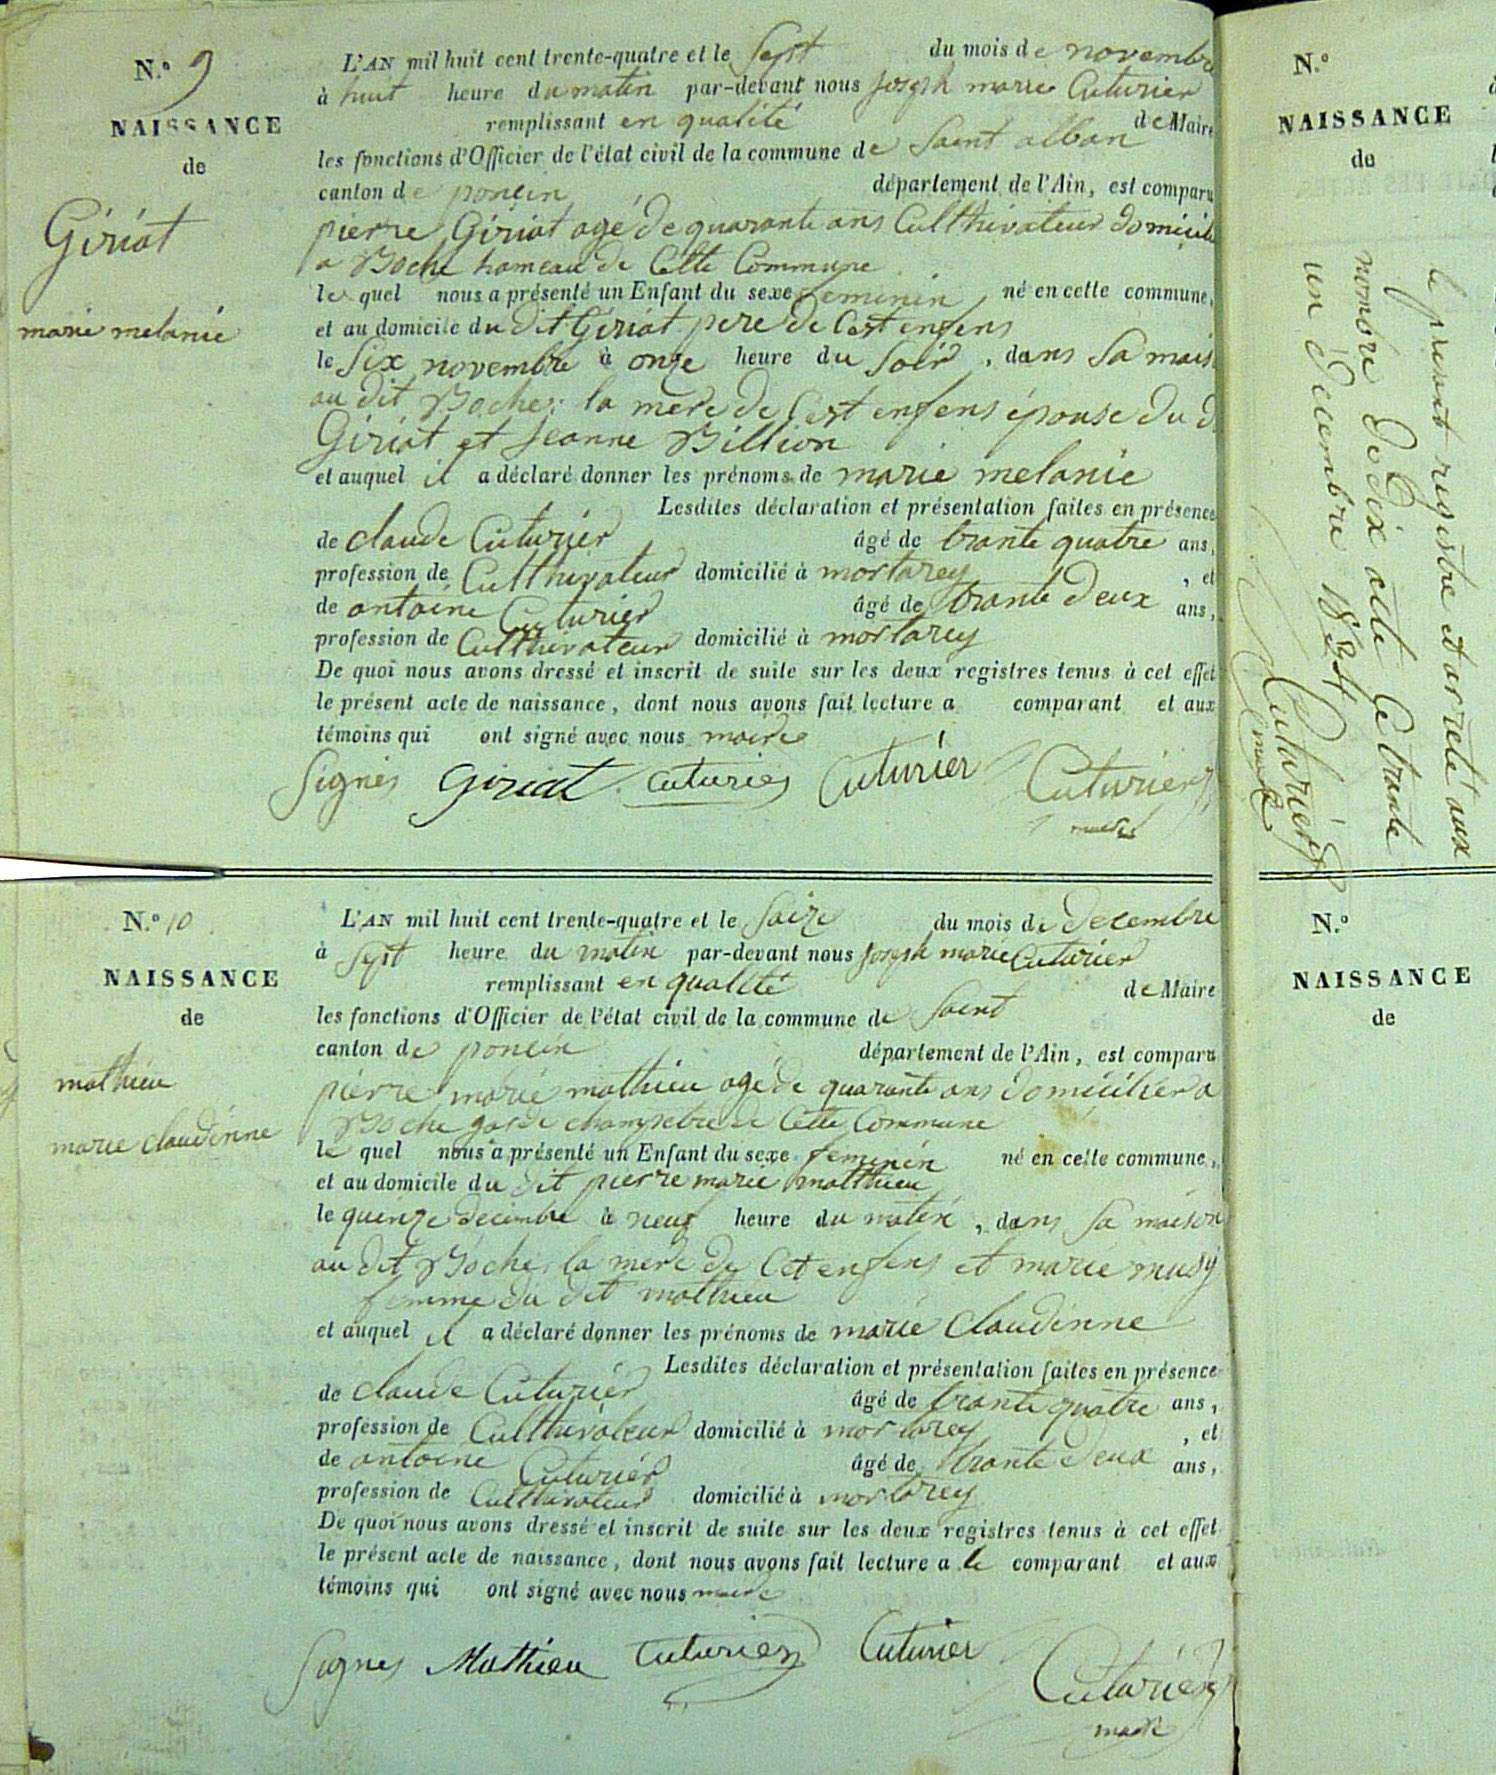 N.o 9
NAISSANCE
de
Giriat
marie melanie
L'AN mil huit cent trente-quatre et le Sept du mois de novembre
à huit heure du matin par-devant nous joseph marie Cuturier
remplissant en qualité de Maire
les fonctions d'Officier de l'état civil de la commune de Saint alban
canton de poncin département de l'Ain, est comparu
pierre Giriat agé de quarante ans Culthivateur domicile
a Boche hameau de Cette Commune
le quel nous a présenté un Enfant du sexe feminin né en cette commune,
et au domicile du dit Giriat pere de Cest enfens
le Six novembre à onze heure du Soir, dans Sa mais
au dit Boche; la mere de Cest enfens épouse du d
Giriat et jeanne Billion
et auquel il a déclaré donner les prénoms de marie melanie
Lesdites déclaration et présentation faites en présence
de claude Cuturier âgé de trante quatre ans,
profession de Culthivateur domicilié à mortarey, et
de antoine Cuturier âgé de trante deux ans,
profession de Culthivateur domicilié à mortarey
De quoi nous avons dressé et inscrit de suite sur les deux registres tenus à cet effet
le présent acte de naissance, dont nous avons fait lecture a comparant et aux
témoins qui ont signé avec nous maire
Signés Giriat Cuturier Cuturier Cuturier
maire
N.o 10
NAISSANCE
de
mathieu
marie claudinne
L'AN mil huit cent trente-quatre et le Saize du mois de decembre
à Sept heure du matin par-devant nous joseph marie Cuturier
remplissant en qualité de Maire
les fonctions d'Officier de l'état civil de la commune de Saint
canton de poncin département de l'Ain, est comparu
pierre marie mathieu agé de quarante ans domicilier a
Boche garde champetre de Cette Commune
le quel nous a présenté un Enfant du sexe feminin né en cette commune,
et au domicile du dit pierre marie matthieu
le quinze decembre à neuf heure du matin, dans Sa maison
au dit Boche; la mere de Cet enfens et marie musy
femme du dit mathieu
et auquel il a déclaré donner les prénoms de marie Claudinne
Lesdites déclaration et présentation faites en présence
de claude Cuturier âgé de trante quatre ans,
profession de Culthivateur domicilié à mortarey, et
de antoine Cuturier âgé de trante deux ans,
profession de Culthivateur domicilié à mortarey
De quoi nous avons dressé et inscrit de suite sur les deux registres tenus à cet effet
le présent acte de naissance, dont nous avons fait lecture a le comparant et aux
témoins qui ont signé avec nous maire
Signes Mathieu Cuturier Cuturier Cuturier
maire
N.o
NAISSANCE
de
le present registre et arreté aux
nombre de dix acte Ce trante
un decembre 1834
Cuturier
maire
N.o
NAISSANCE
de